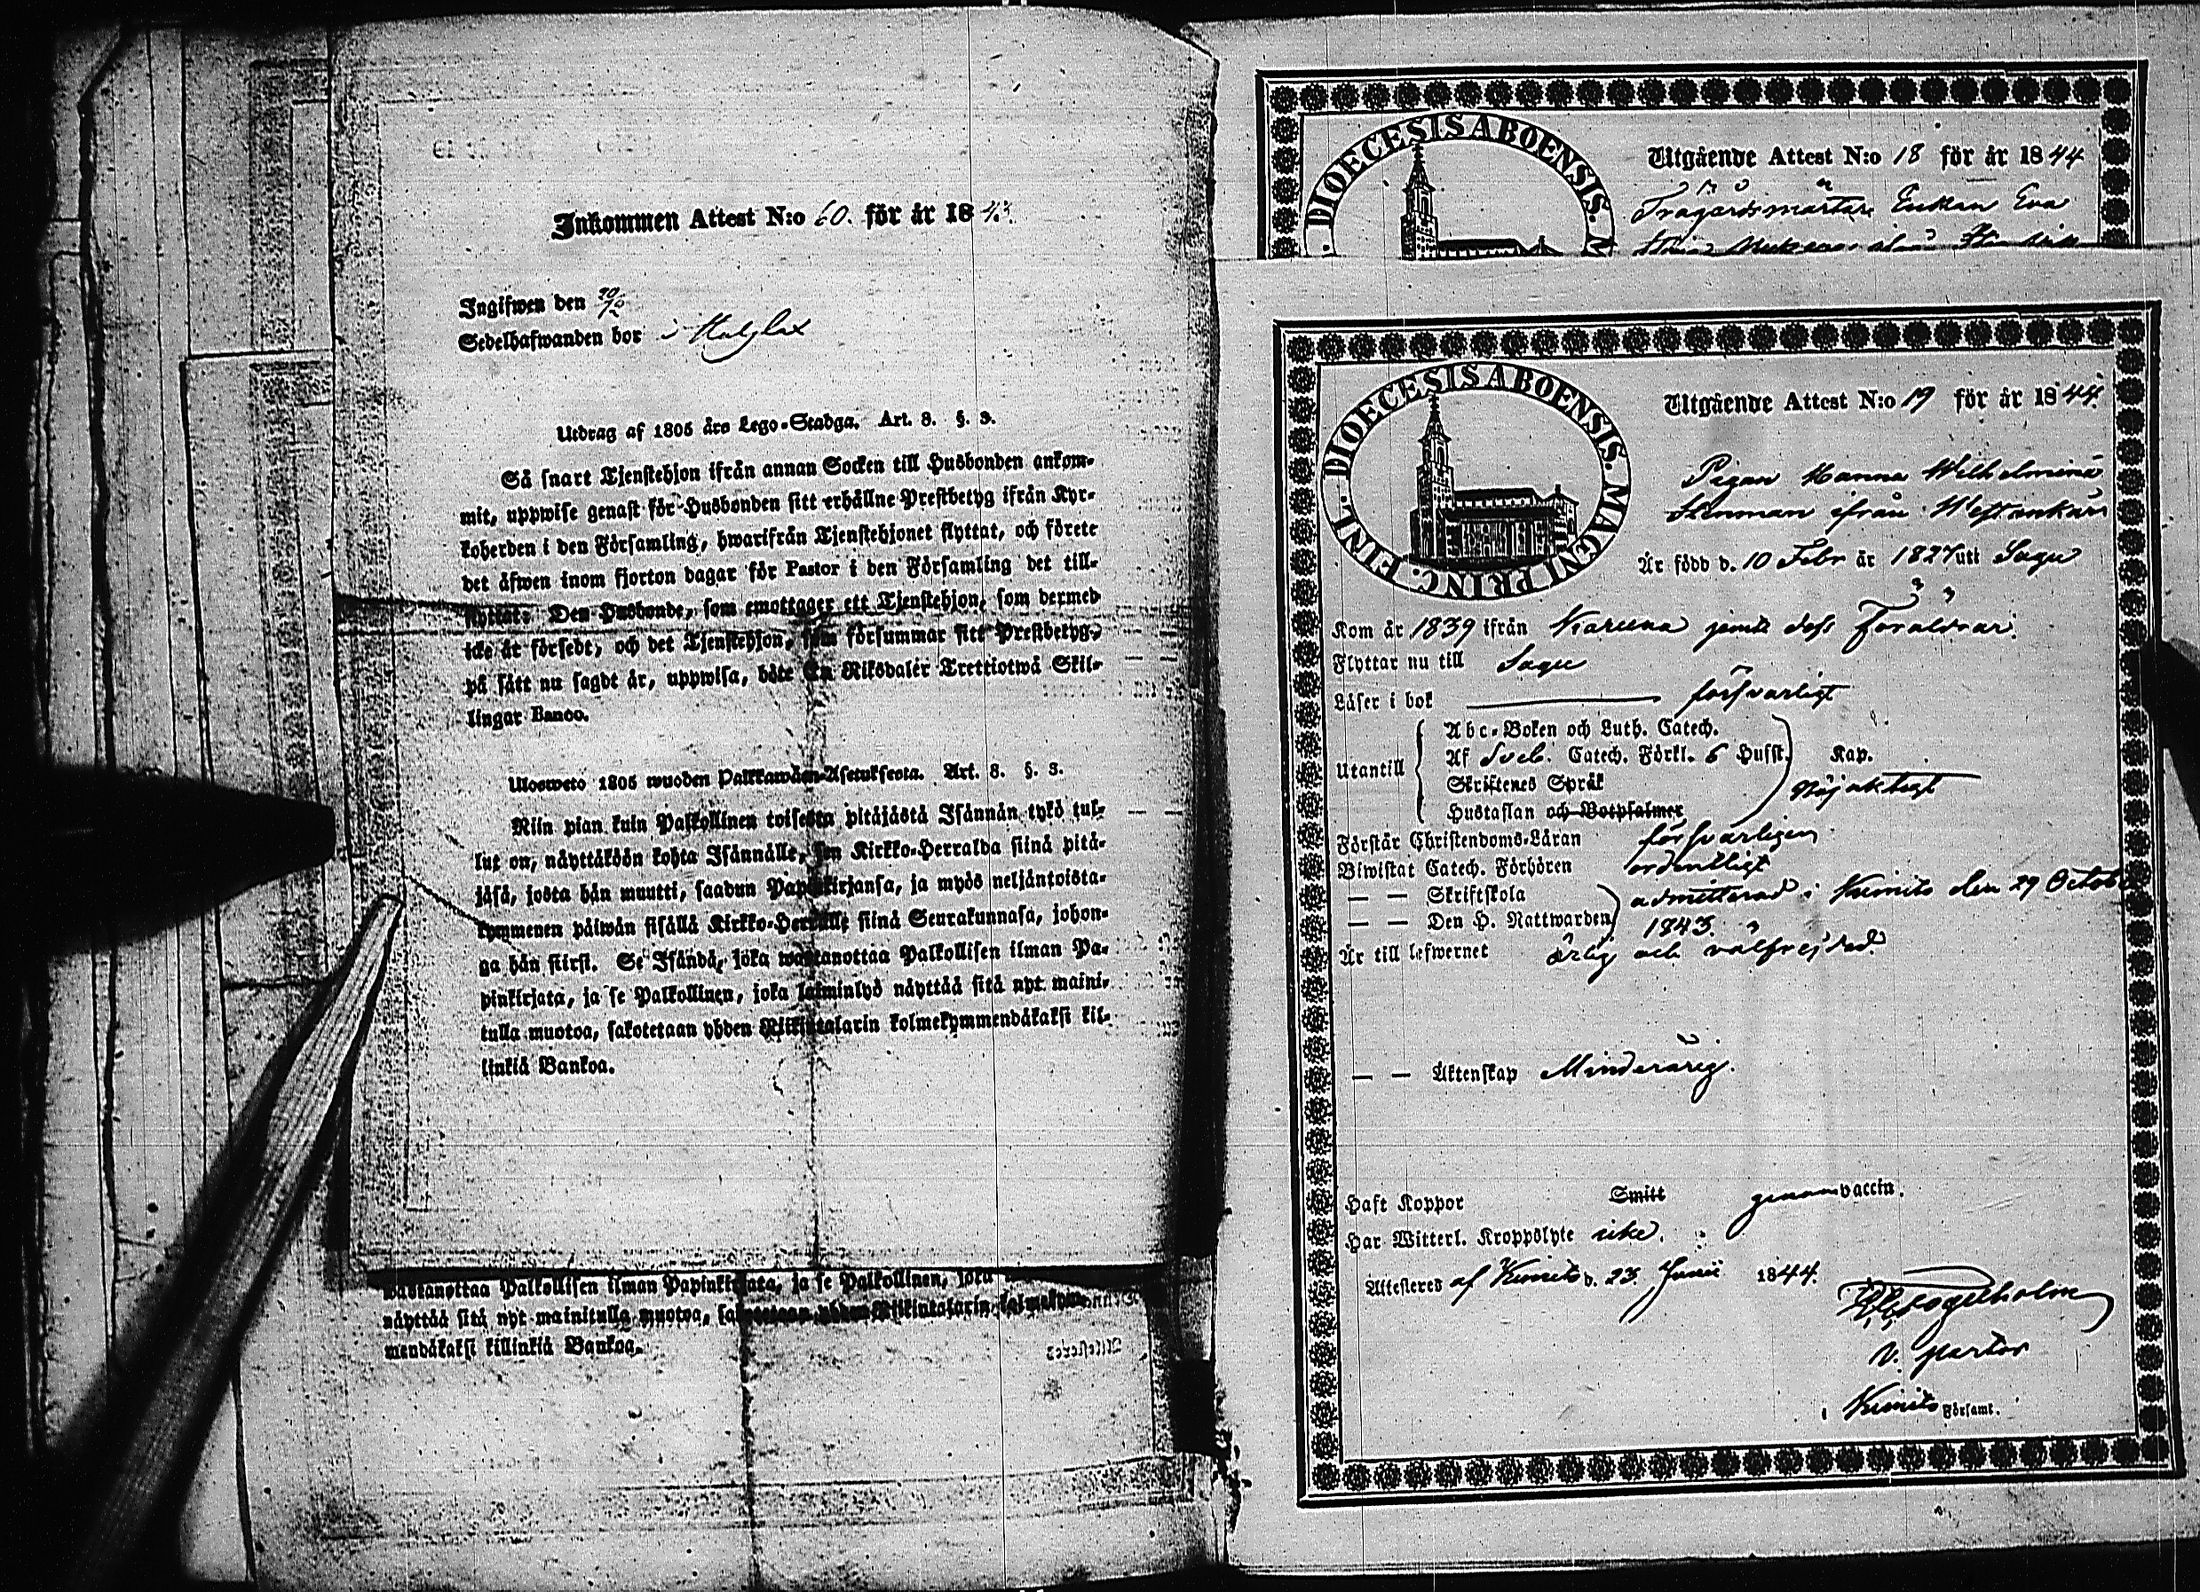 Inkommen Attest N:o 60. för år 1843.
Ingifwen den
Sedelhafwanden bor i
Utdrag af 1805 års Lego-Stadga. Art. 8. §. 3.
Så snart Tjenstehjon ifrån annan Socken till Husbonden ankom-
mit, uppwise genast för Husbonden sitt erhållne Prestbetyg ifrån Kyr-
koherden i den Församling, hwarifrån Tjenstehjonet flyttat, och förete
det äfwen inom fjorton dagar för Pastor i den Församling det till-
flyttat. Den Husbonde, som emottager ett Tjenstehjon, som dermed
icke är försedt, och det Tjenstehjon, som försummar sitt Prestbetyg,
på sätt nu sagdt är, uppwisa, böte En Riksdaler Trettiotwå Skil-
lingar Banco.
Ulosweto 1805 wuoden Palkkawäen-Asetuksesta. Art. 8. §. 3.
Niin pian kuin Palkollinen toisesta pitäjästä Isännän tykö tul-
lut on, näyttäköön kohta Isännälle, sen Kirkko-Herralda siinä pitä-
jäsä, josta hän muutti, saadun Papinkirjansa, ja myös neljäntoista-
kymmenen päiwän sisällä Kirkko-Herralle siinä Seurakunnasa, johon-
ga hän siirsi. Se Isändä, joka wastanottaa Palkollisen ilman Pa-
pinkirjata, ja se Palkollinen, joka laiminlyö näyttää sitä nyt maini-
tulla muotoa, sakotetaan yhden Riikintalarin kolmekymmendäkaksi kil-
linkiä Bankoa.
wastanottaa Palkollisen ilman Papinkirjata, ja se Palkollinen, joka
näyttää sitä nyt mainitulla muotoa, sakotetaan yhden Riikintalarin kolmekym-
mendäkaksi killinkiä Bankoa.
Attesteres
DIOECESIS ABOENSIS. M
Utgående Attest N:o 18 för år 1844
Trägårdsmästare Enkan Eva
DIOECESIS ABOENSIS. MAGNI PRINC. FINL.
Utgående Attest N:o 19 för år 1844.
Pigan Hanna Wilhelmina
Stenman ifrån
Är född d. 10 Febr år 1827 uti Sagu
Kom år 1839 ifrån Karuna jemte dess Föräldrar.
Flyttar nu till Sagu
Läser i bok försvarligt
Utantill
Abc-Boken och Luth. Catech.
Af Sveb. Catech. Förkl. 6 Hufst. Kap.
Skriftenes Språk
Nöjaktigt
Hustaflan och Botpsalmer
Förstår Christendoms-Läran försvarligen
Biwistat Catech. Förhören ordentligt
— — Skriftskola admitterad i Kimito den 29 Octob
— — Den H. Nattwarden 1843.
Är till lefwernet ärlig och välfrejdad.
— — Äktenskap Minderårig.
Haft Koppor Smitt genom vaccin.
Har Witterl. Kroppslyte icke.
Attesteres af Kimito d. 23 Junii 1844.
v. pastor
i Kimito Församl.